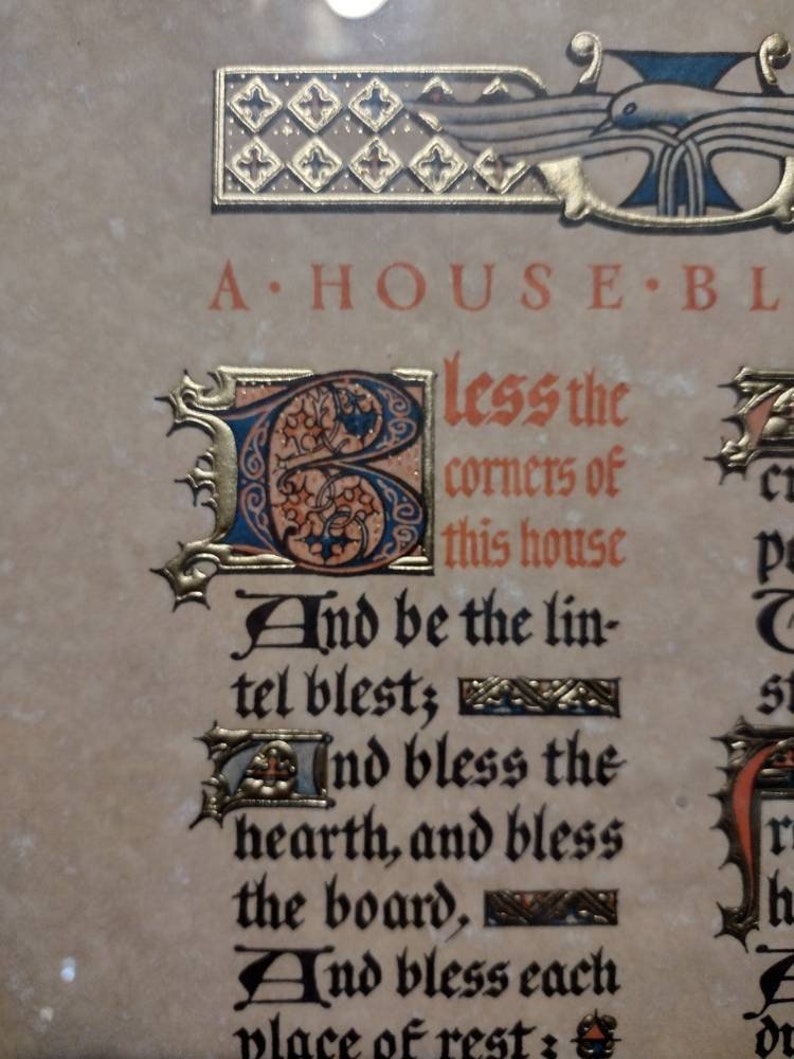 A · HOUSE · BL
Bless the
corners of
this house
And be the lin-
tel blest;
And bless the
hearth, and bless
the board,
And bless each
place of rest:
A
cr
pe
T
st
A
dr